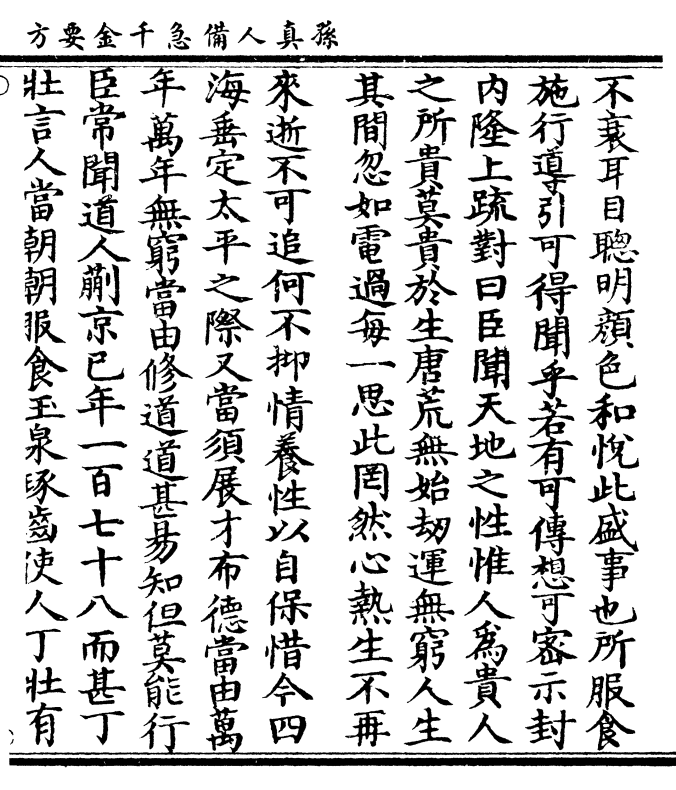 孫真人備急千金要方
不衰耳目聰明顏色和悅此盛事也所服食
施行導引可得聞乎若有可傳想可密示封
內隆上疏對曰臣聞天地之性惟人爲貴人
之所貴莫貴於生唐荒無始劫運無窮人生
其間忽如電過每一思此罔然心熱生不再
來逝不可追何不抑情養性以自保惜今四
海垂定太平之際又當須展才布德當由萬
年萬年無窮當由修道道甚易知但莫能行
臣常聞道人蒯京已年一百七十八而甚丁
壯言人當朝朝服食玉泉琢齒使人丁壯有